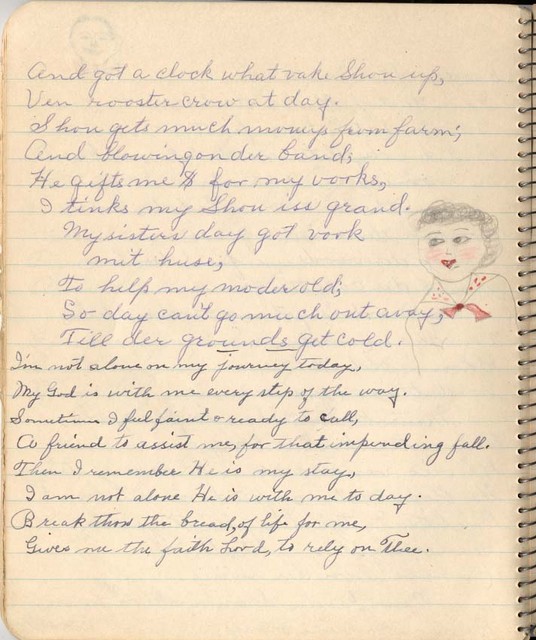 And got a clock what vake Shon up,
Ven rooster crow at day.
Shon gets much moneys from farm;
And blowing on der band;
He gifts me $ for my vorks,
I tinks my Shon iss grand.
My sisters day got vork
mit huse;
To help my moder old;
So day can't go much out avay,
Till der grounds get cold.
I'm not alone on my journey today,
My God is with me every step of the way.
Sometimes I ful faint & ready to call,
A friend to assist me, for that impending fall.
Then I remember He is my stay,
I am not alone He is with me to day.
Break thou the bread, of life for me,
Gives me the faith Lord, to rely on Thee.